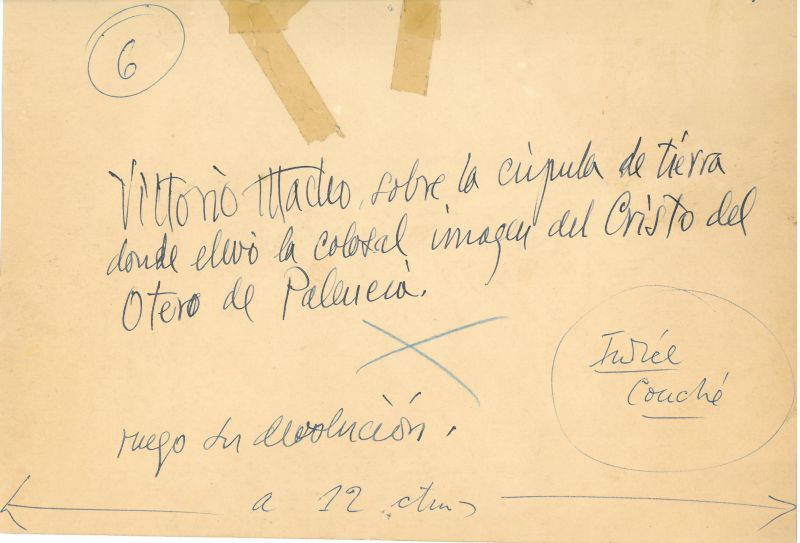 6
Vittorio Macho, sobre la cúpula de tierra
donde elevó la colosal imagen del Cristo del
Otero de Palencia.
Couché
ruego su devolución.
a 12 ctms